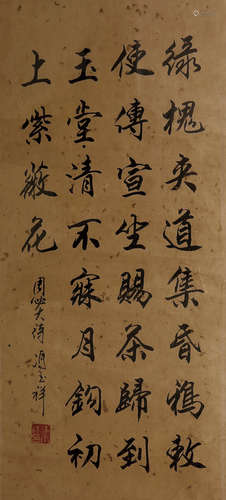 綠槐夾道集昏鴉敕
使傳宣坐賜茶歸到
玉堂清不寐月鉤初
上紫薇花
周必大詩